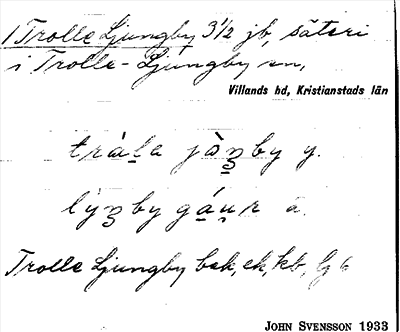 1 Trolle Ljungby 3½ jb, säteri
i Trolle-Ljungby sn,
Villands hd, Kristianstads län
by y.
by
Trolle Ljungby bsk, ek, kb,
JOHN SVENSSON 1933